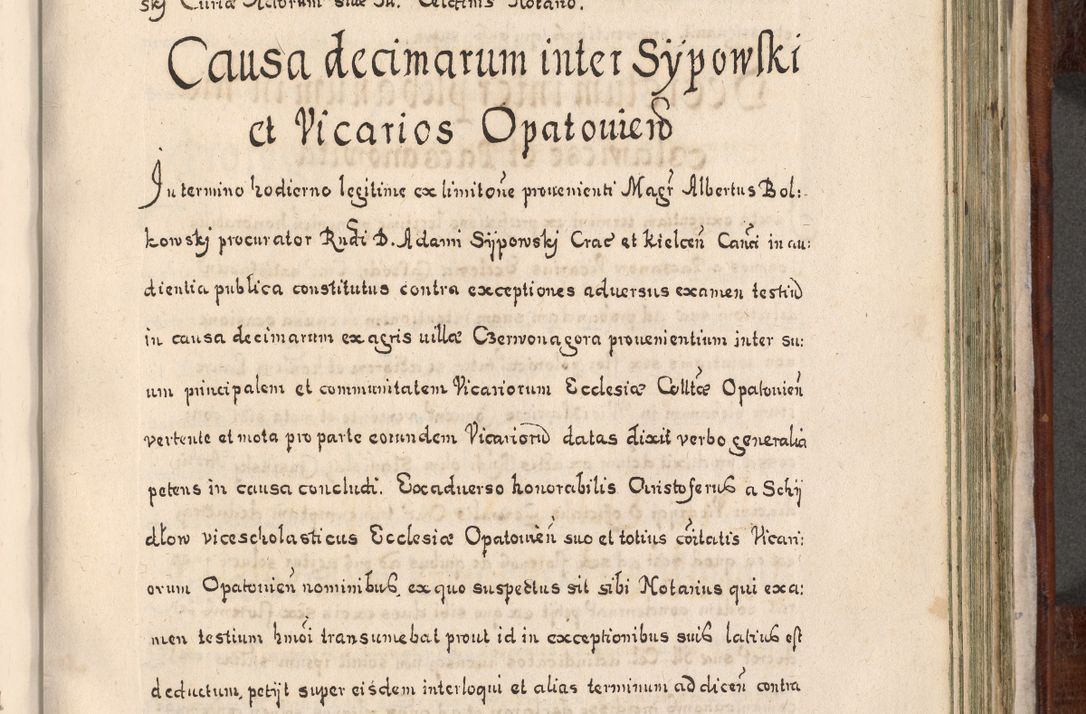 Causa decimarum inter Sÿpowski
et Vicarios Opatouien̄
In termino hodierno legitime ex limitōne prouenienti Magr̄ Albertus Bol:
kowskj procurator Rndi D. Adami Sÿpowski Crac̄ et kielcen̄ Canci in au:
dientia publica constitutus contra exceptiones aduersus examen testiū
in causa decimarum ex agris uillæ Czerwonagora prouenientium inter su:
um principalem et communitatem Vicariorum Ecclesiæ Colltæ Opatouien̄
vertente et mota pro parte eorundem Vicariorū datas dixit verbo generalia
petens in causa concludi. Ex aduerso honorabilis Christoferus a Schÿ
dłow vicescholasticus Ecclesiæ Opatouien̄ suo et totius cōitatis Vicari:
orum Opatouien̄ nominibus, ex quo suspectus sit sibi Notarius qui exa:
men testium hmōi transumebat prout id in exceptionibus suis latius est
deductum, petijt super eisdem interloqui et alias terminum ad dicen̄ contra